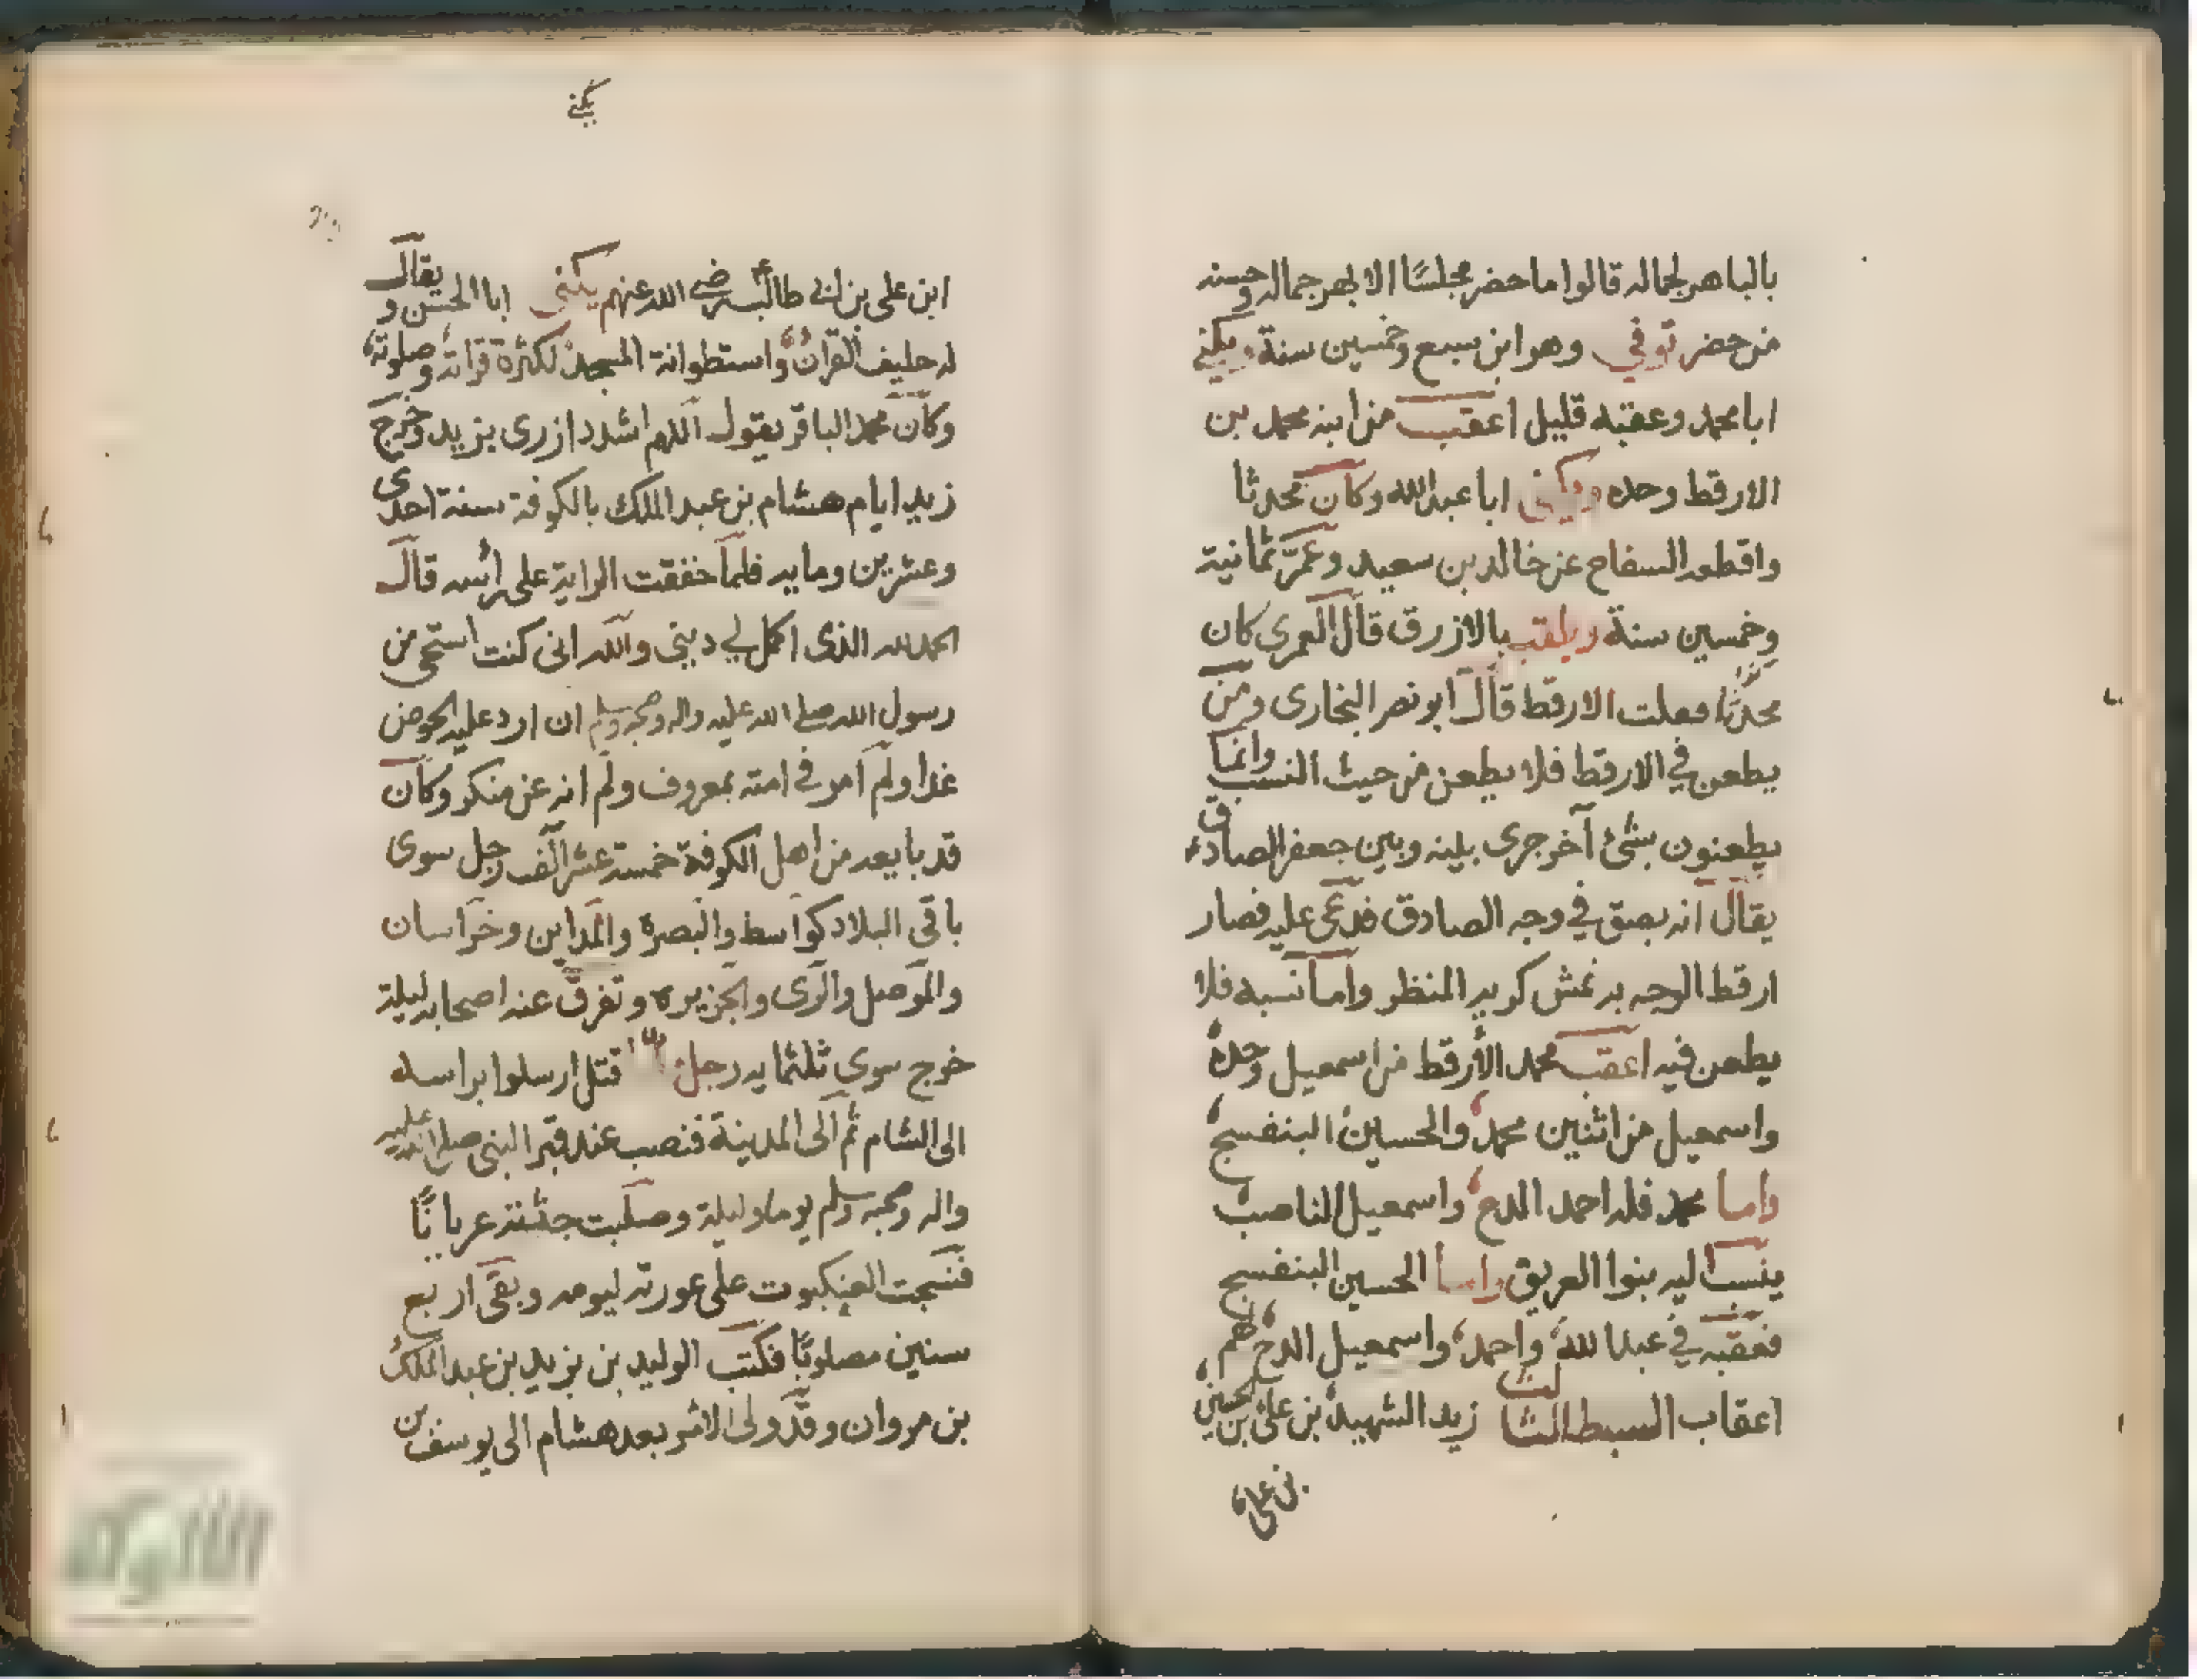 بالباهر لجماله قالوا ما حضر مجلسًا الا بهر جماله وحسنه
من حضر توفي وهو ابن سبع وخمسين سنة ويكنى
ابا محمد وعقبه قليل اعقب من ابنه محمد بن
الارقط وحده ويكنى ابا عبد الله وكان محدثا
واقطعه السفاح عن خالد بن سعيد وعمّر ثمانية
وخمسين سنة ويلقب بالازرق قال العمرى كان
محدثًا فعلت الارقط قال ابو نصر البخارى ومن
يطعن في الارقط فلا يطعن من حيث النسب وانما
يطعنون بشئ آخر جرى بينه وبين جعفر الصادق
يقال انه بصق في وجه الصادق فدعى عليه فصار
ارقط الوجه به نمش كريه المنظر واما نسبه فلا
يطعن فيه اعقب محمد الأرقط من اسمعيل وحده
واسمعيل من اثنين محمد والحسين البنفسج
واما محمد فله احمد الدخ واسمعيل الناصب
ينسب اليه بنوا العريق واما الحسين البنفسج
فعقبه في عبد الله واحمد واسمعيل الدخ لهم
اعقاب السبط الثالث زيد الشهيد بن على بن الحسين
بن على
يكنى
ابن على بن ابى طالب رضى الله عنهم يكنى ابا الحسن ويقال
له حليف القران واستطوانة المسجد لكثرة قراته وصلوته
وكان محمد الباقر يقول اللهم اشدد ازرى بزيد وخرج
زيد ايام هشام بن عبد الملك بالكوفة سنة احدى
وعشرين ومايه فلما خفقت الراية على رأسه قال
الحمد لله الذى اكمل لي دينى والله انى كنت استحى من
رسول الله صلى الله عليه واله وصحبه وسلم ان ارد عليه الحوض
غدا ولم آمر في امته بمعروف ولم انه عن منكر وكان
قد بايعه من اهل الكوفة خمسة عشر الف رجل سوى
باقى البلاد كواسط والبصرة والمداين وخراسان
والموصل والرى والجزيره وتفرق عنه اصحابه ليلة
خرج سوى ثلثمايه رجل قتل ارسلوا براسه
الى الشام ثم الى المدينة فنصب عند قبر النبى صلى الله عليه
واله وصحبه وسلم يوما وليلة وصلبت جثته عريانًا
فنسجت العنكبوت على عورته ليومه وبقى اربع
سنين مصلوبًا فكتب الوليد بن يزيد بن عبد الملك
بن مروان وقد ولى الامر بعد هشام الى يوسف بن